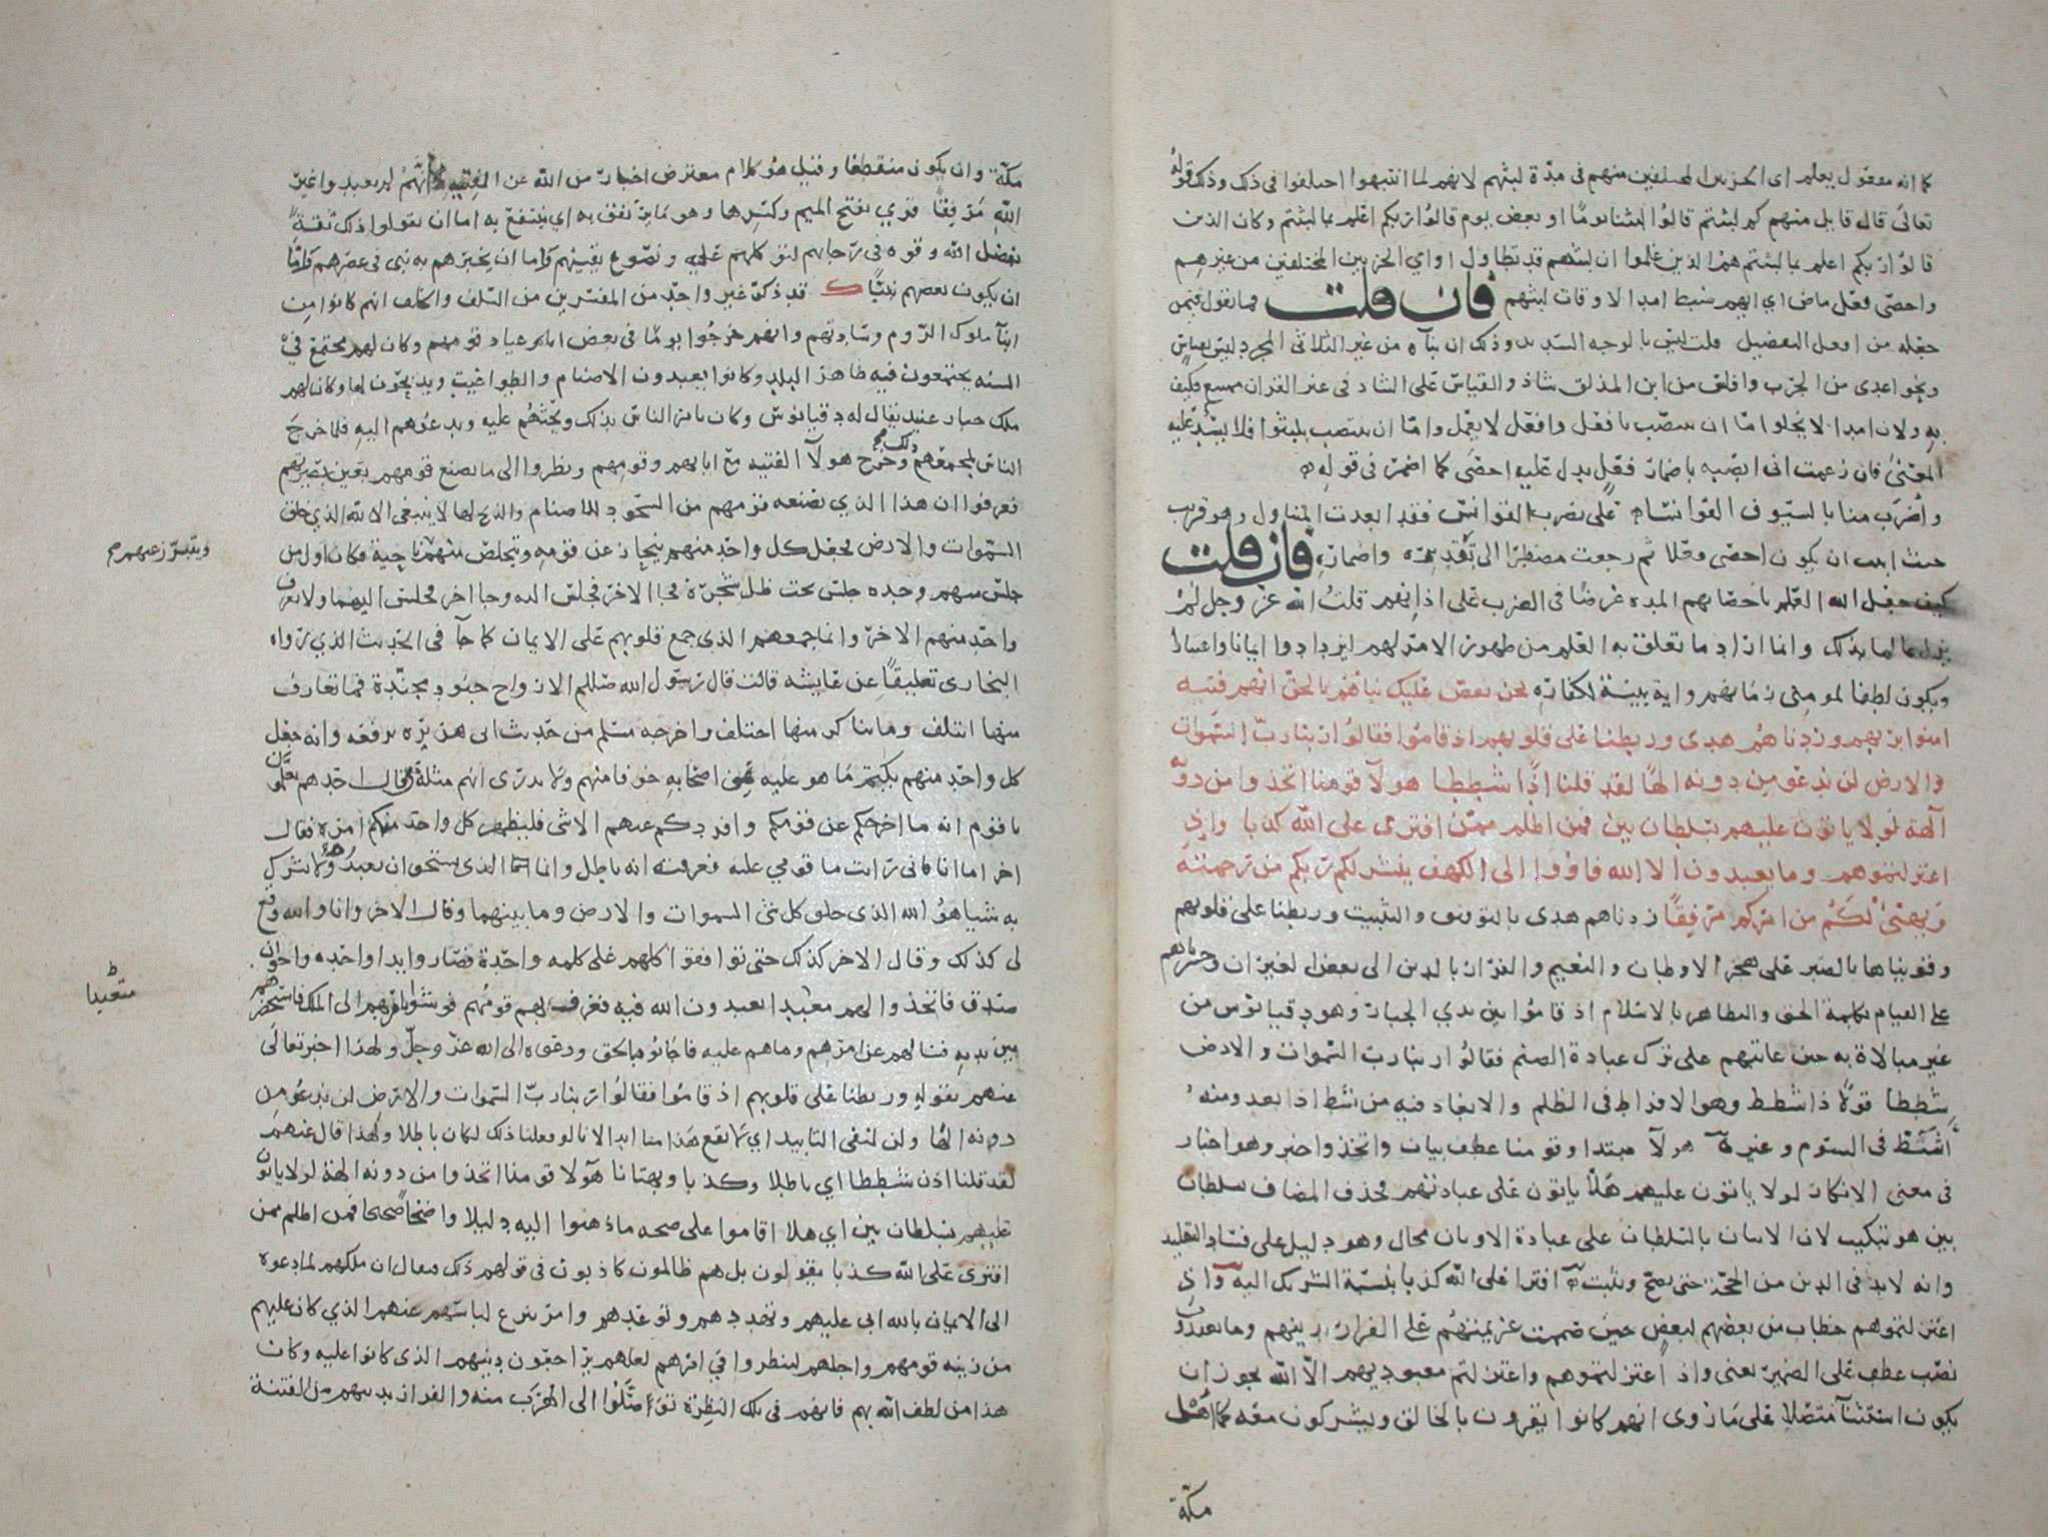 كما انه معقول يعلم اي الحزبين المختلفين منهم في مدة لبثهم لانهم لما انتبهوا اختلفوا في ذلك وذلك قوله
تعالى قال قايل منهم كم لبثتم قالوا لبثنا يوما او بعض يوم قالوا ربكم اعلم بما لبثتم وكان الذين
قالوا ربكم اعلم بما لبثتم هم الذين علموا ان لبثهم قد تطاول او اي الحزبين المختلفين من غيرهم
واحصى فعل ماض اي ايهم ضبط امدا لاوقات لبثهم فان قلت فما تقول فيمن
جعله من افعل التفضيل قلت ليس بالوجه السديد وذلك ان بناه من غير الثلاثي المجرد ليس بقياس
ونحو اعدى من الجرب وافلس من ابن المذلق شاذ والقياس على الشاذ في غير القران ممتنع فكيف
به ولان امدا لا يخلوا اما ان ينتصب بافعل وافعل لا يعمل واما ان ينتصب بلبثوا فلا يسد عليه
المعنى فان زعمت اني انصبه باضمار فعل يدل عليه احصى كما اضمر في قوله
واضرب منا بالسيوف القوانسا على نضرب القوانس فقد ابعدت المتناول وهو قريب
حيث ابيت ان يكون احصى فعلا ثم رجعت مضطرا الى تقديره واضماره فان قلت
كيف جعل الله العلم باحصايهم المدة غرضا في الضرب على اذانهم قلت الله عز وجل لم
يزل عالما بذلك وانما اراد ما تعلق به العلم من ظهور الامر لهم ليزدادوا ايمانا واعتبارا
ويكون لطفا لمومني زمانهم واية بينة لكفاره نحن نقص عليك نباهم بالحق انهم فتيه
امنوا بربهم وزدناهم هدى وربطنا على قلوبهم اذ قاموا فقالوا ربنا رب السموات
والارض لن ندعو من دونه الها لقد قلنا اذا شططا هولا قومنا اتخذوا من دونه
آلهة لولا ياتون عليهم بسلطان بين فمن اظلم ممن افترى على الله كذبا واذ
اعتزلتموهم وما يعبدون الا الله فاووا الى الكهف ينشر لكم ربكم من رحمته
ويهيئ لكم من امركم مرفقا زدناهم هدى بالتوفيق والتثبيت وربطنا على قلوبهم
وقويناها بالصبر على هجر الاوطان والنعيم والفرار بالدين الى بعض الغيران وجسرناهم
على القيام بكلمة الحق والتظاهر بالاسلام اذ قاموا بين يدي الجبار وهو دقيانوس من
غير مبالاة به حين عاتبهم على ترك عبادة الصنم فقالوا ربنا رب السموات والارض
شططا قولا ذا شطط وهو الافراط في الظلم والابعاد فيه من شط اذا بعد ومنه
اشتط في السوم وغيره هولآ مبتدا وقومنا عطف بيان واتخذوا خبر وهو اخبار
في معنى الانكار لولا ياتون عليهم هلا ياتون على عبادتهم فحذف المضاف بسلطان
بين هو تبكيت لان الاتيان بالسلطان على عبادة الاوثان محال وهو دليل على فساد التقليد
وانه لابد في الدين من الحجة حتى يصح ويثبت افترا على الله كذبا بنسبة الشريك اليه واذ
اعتزلتموهم خطاب من بعضهم لبعض حين صممت عزيمتهم على الفرار بدينهم وما يعبدون
نصب عطف على الضمير يعنى واذ اعتزلتموهم واعتزلتم معبوديهم الا الله يجوز ان
يكون استثنآ متصلا على ما روى انهم كانوا يقرون بالخالق ويشركون معه كما اهل
مكة
مكة وان يكون منقطعا وقيل هو كلام معترض اخبار من الله عن الفتيه انهم لم يعبدوا غير
الله مرفقا قري بفتح الميم وكسرها وهو ما يرتفق به اي ينتفع به اما ان يقولوا ذلك ثقة
بفضل الله وقوه في رجايهم لتوكلهم عليه ونصوع يقينهم واما ان يخبرهم به نبي في عصرهم واما
ان يكون بعضهم نبيا ك قد ذكر غير واحد من المفسرين من السلف والخلف انهم كانوا من
ابنآ ملوك الروم وسادتهم وانهم خرجوا يوما في بعض اعياد قومهم وكان لهم مجتمع في
السنه يجتمعون فيه ظاهر البلد وكانوا يعبدون الاصنام والطواغيت ويذبحون لها وكان لهم
ملك جبار عنيد يقال له دقيانوس وكان يامر الناس بذلك ويحثهم عليه ويدعوهم اليه فلما خرج
الناس لمجمعهم ذلك وخرج هولآ الفتيه مع ابايهم وقومهم ونظروا الى ما يصنع قومهم بعين بصيرتهم
فعرفوا ان هذا الذي يصنعه قومهم من السجود للاصنام والذبح لها لا ينبغي الا لله الذي خلق
السموات والارض فجعل كل واحد منهم ينحاز عن قومه ويتخلص منهم ناحية فكان اول من
ويتبرز عنهم صح
جلس منهم وحده جلس تحت ظل شجرة فجا الاخر فجلس اليه وجا اخر فجلس اليهما ولا يعرف
واحد منهم الاخر وانما جمعهم الذى جمع قلوبهم على الايمان كما جآ في الحديث الذي رواه
البخارى تعليقا عن عايشه قالت قال رسول الله صللم الارواح جنود مجندة فما تعارف
منها ائتلف وما تناكر منها اختلف واخرجه مسلم من حديث ابى هريره يرفعه وانه جعل
كل واحد منهم يكتم ما هو عليه عن اصحابه خوفا منهم ولا يدرى انهم مثله فقال احدهم تعلمون
يا قوم انه ما اخرجكم عن قومكم وافردكم عنهم الا شى فليظهر كل واحد منكم امره فقال
اخر اما انا فاني رايت ما قومي عليه فعرفت انه باطل وانما الذى يستحق ان يعبد ولا يشرك
به شيا هو الله الذى خلق كل شى السموات والارض وما بينهما وقال الاخر وانا والله وقع
لى كذلك وقال الاخر كذلك حتى توافقوا كلهم على كلمه واحدة فصاروا يدا واحده واخوان
صدق فاتخذوا لهم معبدا يعبدون الله فيه فعرف بهم قومهم فوشوا بامرهم الى الملك فاستحضرهم
متعبدا
بين يديه فسالهم عن امرهم وما هم عليه فاجابوه بالحق ودعوه الى الله عز وجل ولهذا اخبر تعالى
عنهم بقوله وربطنا على قلوبهم اذ قاموا فقالوا ربنا رب السموات والارض لن ندعو من
دونه الها ولن لنفى التابيد اي لا يقع هذا منا ابدا لانا لو فعلنا ذلك لكان باطلا ولهذا قال عنهم
لقد قلنا اذن شططا اي باطلا وكذبا وبهتانا هولا قومنا اتخذوا من دونه الهة لولا ياتون
عليهم بسلطان بين اي هلا اقاموا على صحه ما ذهبوا اليه دليلا واضحا صحيحا فمن اظلم ممن
افترى على الله كذبا يقولون بل هم ظالمون كاذبون في قولهم ذلك فيقال ان ملكهم لما دعوه
الى الايمان بالله ابى عليهم وتهددهم وتوعدهم وامر بنزع لباسهم عنهم الذي كان عليهم
من زينه قومهم واجلهم لينظروا في امرهم لعلهم يراجعون دينهم الذى كانوا عليه وكان
هذا من لطف الله بهم فانهم في تلك النظرة توصلوا الى الهرب منه والفرار بدينهم من الفتنة